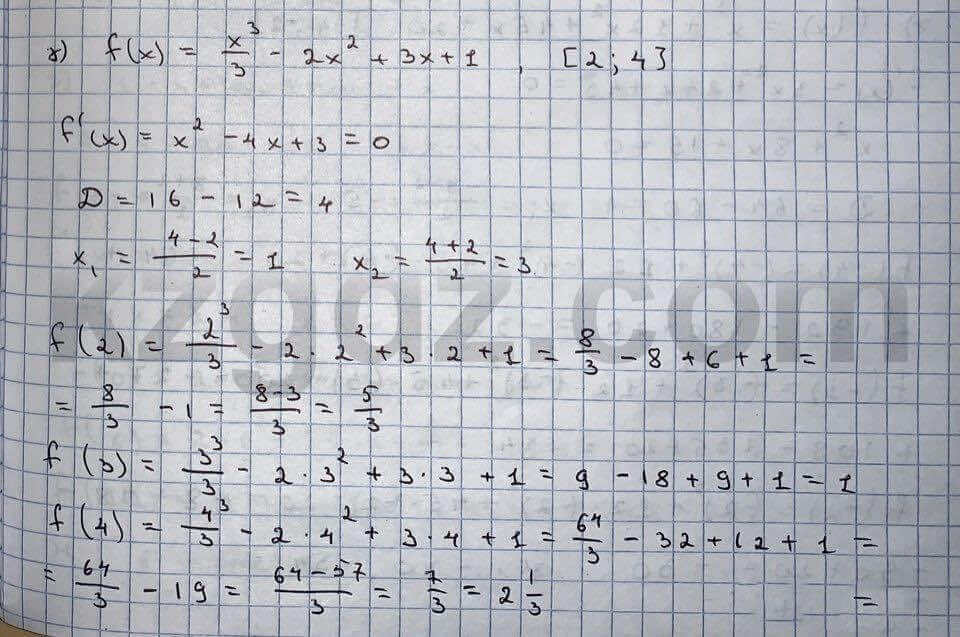 г) f(x) = x³/3 - 2x² + 3x + 1 , [2; 4]
f'(x) = x² - 4x + 3 = 0
D = 16 - 12 = 4
x₁ = (4-2)/2 = 1 x₂ = (4+2)/2 = 3
f(2) = 2³/3 - 2 · 2² + 3 · 2 + 1 = 8/3 - 8 + 6 + 1 =
= 8/3 - 1 = (8-3)/3 = 5/3
f(3) = 3³/3 - 2 · 3² + 3 · 3 + 1 = 9 - 18 + 9 + 1 = 1
f(4) = 4³/3 - 2 · 4² + 3 · 4 + 1 = 64/3 - 32 + 12 + 1 =
= 64/3 - 19 = (64-57)/3 = 7/3 = 2 1/3 =